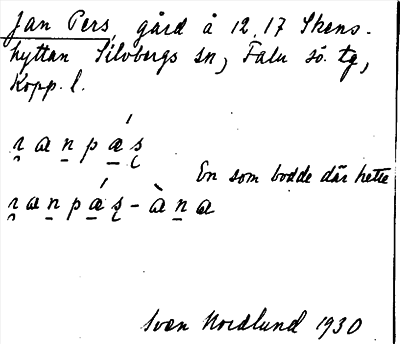 Jan Pers, gård å 12.17 Skens-
hyttan Silvbergs sn, Falu sö. tg,
Kopp. l.
ɿanpás
En som bodde där hette
ɿanpás-àna
Sven Nordlund 1930